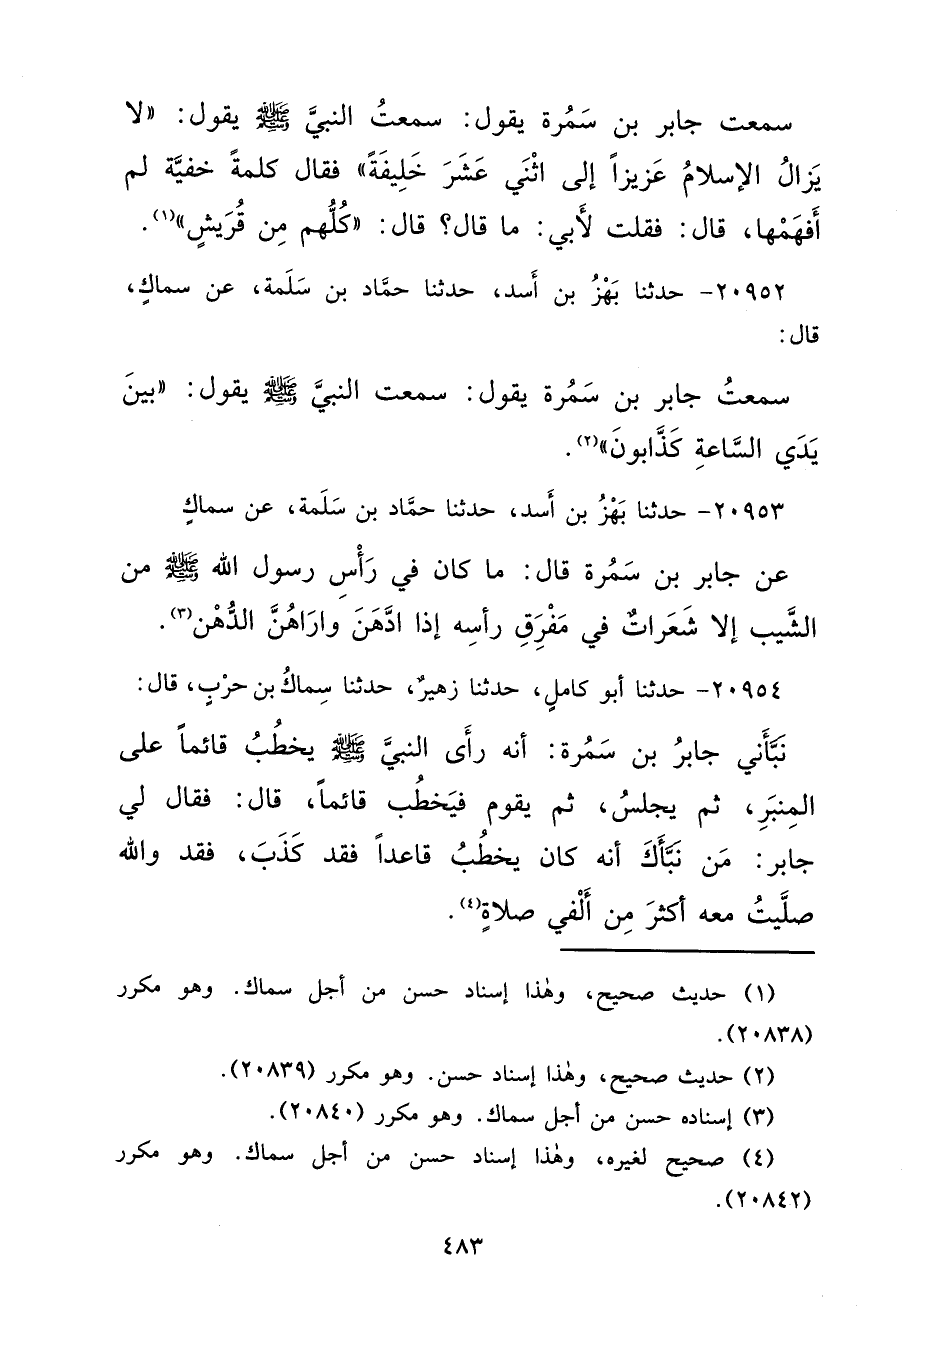 سمعت جابر بن سَمُرة يقول: سمعتُ النبيَّ ﷺ يقول: «لا
يَزالُ الإسلامُ عَزيزاً إلى اثْنَي عَشَرَ خَلِيفَةً» فقال كلمةً خفيَّة لم
أَفهَمْها، قال: فقلت لأَبي: ما قال؟ قال: «كُلُّهم مِن قُرَيشٍ»(١).
٢٠٩٥٢- حدثنا بَهْزُ بن أَسد، حدثنا حمَّاد بن سَلَمة، عن سماكٍ،
قال:
سمعتُ جابر بن سَمُرة يقول: سمعت النبيَّ ﷺ يقول: «بينَ
يَدَي السَّاعةِ كَذَّابونَ»(٢).
٢٠٩٥٣- حدثنا بَهْزُ بن أَسد، حدثنا حمَّاد بن سَلَمة، عن سماكٍ
عن جابر بن سَمُرة قال: ما كان في رَأْسِ رسول الله ﷺ من
الشَّيب إلا شَعَراتٌ في مَفْرَقِ رأسِه إذا ادَّهَنَ وارَاهُنَّ الدُّهْن(٣).
٢٠٩٥٤- حدثنا أبو كاملٍ، حدثنا زهيرٌ، حدثنا سِماكُ بن حرْبٍ، قال:
نَبَّأَني جابرُ بن سَمُرة: أنه رأَى النبيَّ ﷺ يخطُبُ قائماً على
المِنبَرِ، ثم يجلسُ، ثم يقوم فيَخطُب قائماً، قال: فقال لي
جابر: مَن نَبَّأَكَ أنه كان يخطُبُ قاعداً فقد كَذَبَ، فقد والله
صلَّيتُ معه أكثرَ مِن أَلْفي صلاةٍ(٤).
(١) حديث صحيح، وهٰذا إسناد حسن من أجل سماك. وهو مكرر
(٢٠٨٣٨).
(٢) حديث صحيح، وهٰذا إسناد حسن. وهو مكرر (٢٠٨٣٩).
(٣) إسناده حسن من أجل سماك. وهو مكرر (٢٠٨٤٠).
(٤) صحيح لغيره، وهٰذا إسناد حسن من أجل سماك. وهو مكرر
(٢٠٨٤٢).
٤٨٣